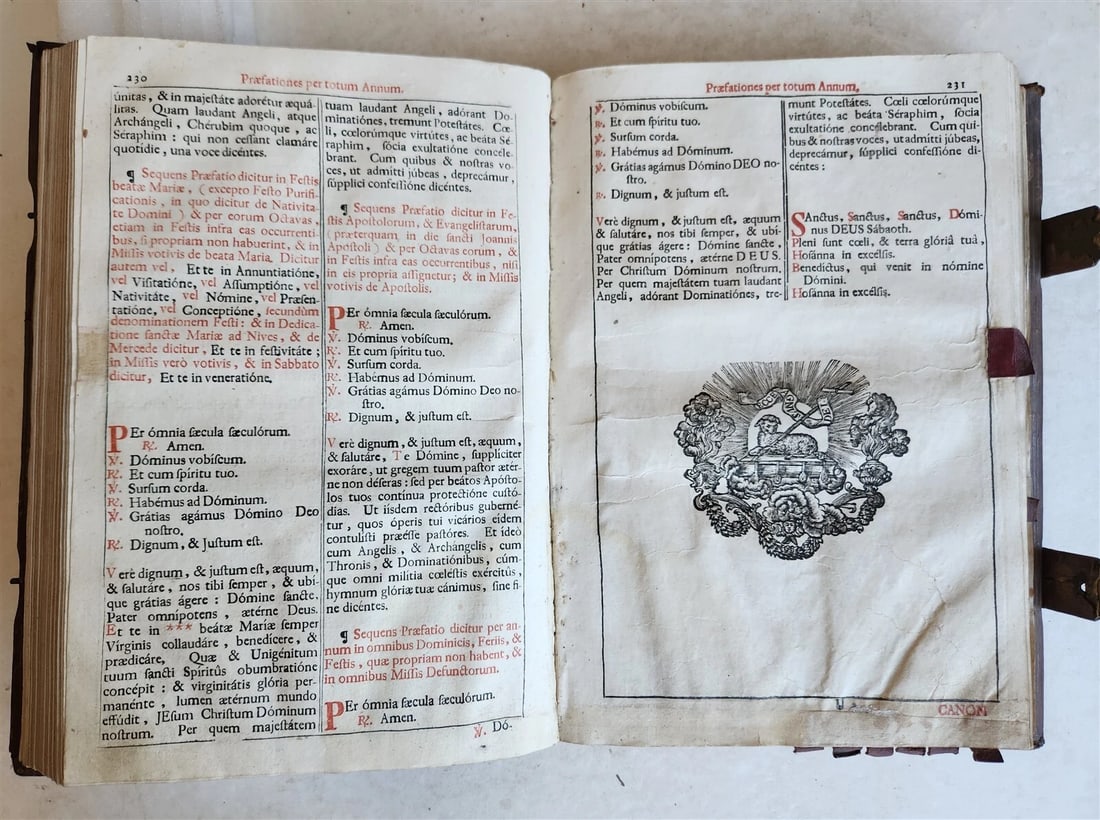 230
Præfationes per totum Annum.
únitas, & in majeſtáte adorétur æquá-
litas. Quam laudant Angeli, atque
Archángeli, Chérubim quoque, ac
Séraphim : qui non ceſſant clamáre
quotídie, una voce dicéntes.
¶ Sequens Præfatio dicitur in Feſtis
beatæ Mariæ, ( excepto Feſto Purifi-
cationis, in quo dicitur de Nativita-
te Domini ) & per eorum Octavas,
etiam in Feſtis infra eas occurrenti-
bus, ſi propriam non habuerint, & in
Miſſis votivis de beata Maria. Dicitur
autem vel, Et te in Annuntiatióne,
vel Viſitatióne, vel Aſſumptióne, vel
Nativitáte, vel Nómine, vel Præſen-
tatióne, vel Conceptióne, ſecundùm
denominationem Feſti : & in Dedica-
tione ſanctæ Mariæ ad Nives, & de
Mercede dicitur, Et te in feſtivitáte ;
in Miſſis verò votivis, & in Sabbato
dicitur, Et te in veneratióne.
PEr ómnia ſæcula ſæculórum.
℟. Amen.
℣. Dóminus vobíſcum.
℟. Et cum ſpíritu tuo.
℣. Surſum corda.
℟. Habémus ad Dóminum.
℣. Grátias agámus Dómino Deo
noſtro.
℟. Dignum, & Juſtum eſt.
Verè dignum, & juſtum eſt, æquum,
& ſalutáre, nos tibi ſemper, & ubí-
que grátias ágere : Dómine ſancte,
Pater omnípotens, ætérne Deus.
Et te in *** beátæ Maríæ ſemper
Vírginis collaudáre, benedícere, &
prædicáre, Quæ & Unigénitum
tuum ſancti Spíritûs obumbratióne
concépit : & virginitátis glória per-
manénte, lumen ætérnum mundo
effúdit, JEſum Chriſtum Dóminum
noſtrum. Per quem majeſtátem
tuam laudant Angeli, adórant Do-
minatiónes, tremunt Poteſtátes. Cœ-
li, cœlorúmque virtútes, ac beáta Sé-
raphim, ſócia exultatióne concéle-
brant. Cum quibus & noſtras vo-
ces, ut admitti júbeas, deprecámur,
ſúpplici confeſſióne dicéntes.
¶ Sequens Præfatio dicitur in Fe-
ſtis Apoſtolorum, & Evangeliſtarum,
(præterquam in die ſancti Joannis
Apoſtoli) & per Octavas eorum, &
in Feſtis infra eas occurrentibus, niſi
in eis propria aſſignetur; & in Miſſis
votivis de Apoſtolis.
PEr ómnia ſæcula ſæculórum.
℟. Amen.
℣. Dóminus vobíſcum.
℟. Et cum ſpíritu tuo.
℣. Surſum corda.
℟. Habémus ad Dóminum.
℣. Grátias agámus Dómino Deo no-
ſtro.
℟. Dignum, & juſtum eſt.
Verè dignum, & juſtum eſt, æquum,
& ſalutáre, Te Dómine, ſupplíciter
exoráre, ut gregem tuum paſtor ætér-
ne non déſeras : ſed per beátos Apóſto-
los tuos contínua protectióne cuſtó-
dias. Ut iíſdem rectóribus guberné-
tur, quos óperis tui vicários eídem
contulíſti præéſſe paſtóres. Et ídeò
cum Angelis, & Archángelis, cum
Thronis, & Dominatiónibus, cúm-
que omni militia cœléſtis exércitûs,
hymnum glóriæ tuæ cánimus, ſine fi-
ne dicéntes.
¶ Sequens Præfatio dicitur per an-
num in omnibus Dominicis, Feriis, &
Feſtis, quæ propriam non habent, &
in omnibus Miſſis Defunctorum.
PEr ómnia ſæcula ſæculórum.
℟. Amen.
℣. Dó-
Præfationes per totum Annum.
231
℣. Dóminus vobiſcum.
℟. Et cum ſpíritu tuo.
℣. Surſum corda.
℟. Habémus ad Dóminum.
℣. Grátias agámus Dómino DEO no-
ſtro.
℟. Dignum, & juſtum eſt.
Verè dignum, & juſtum eſt, æquum
& ſalutáre, nos tibi ſemper, & ubí-
que grátias ágere : Dómine ſancte,
Pater omnípotens, ætérne DEUS.
Per Chriſtum Dóminum noſtrum.
Per quem majeſtátem tuam laudant
Angeli, adórant Dominatiónes, tre-
munt Poteſtátes. Cœli cœlorúmque
virtútes, ac beáta Séraphim, ſocia
exultatióne concélebrant. Cum qui-
bus & noſtras voces, ut admitti júbeas,
deprecámur, ſúpplici confeſſióne di-
céntes :
SAnctus, Sanctus, Sanctus, Dómi-
nus DEUS Sábaoth.
Pleni ſunt cœli, & terra glóriâ tuâ,
Hoſánna in excélſis.
Benedíctus, qui venit in nómine
Dómini.
Hoſánna in excélſis.
ECCE AGNUS DEI
CANON